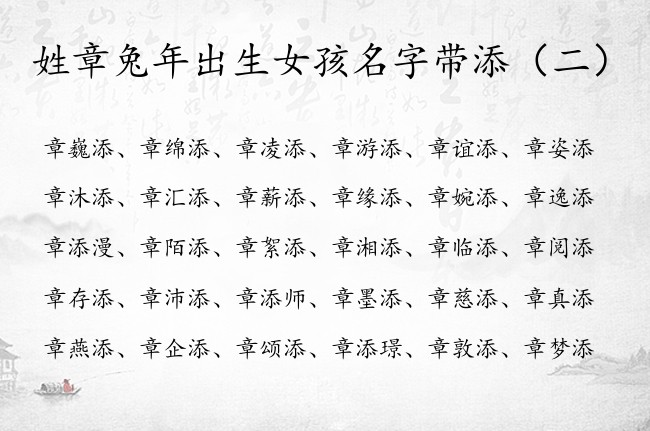 姓章兔年出生女孩名字带添（二）
章巍添、章绵添、章凌添、章游添、章谊添、章姿添
章沐添、章汇添、章薪添、章缘添、章婉添、章逸添
章添漫、章陌添、章絮添、章湘添、章临添、章阅添
章存添、章沛添、章添师、章墨添、章慈添、章真添
章燕添、章企添、章颂添、章添璟、章敦添、章梦添